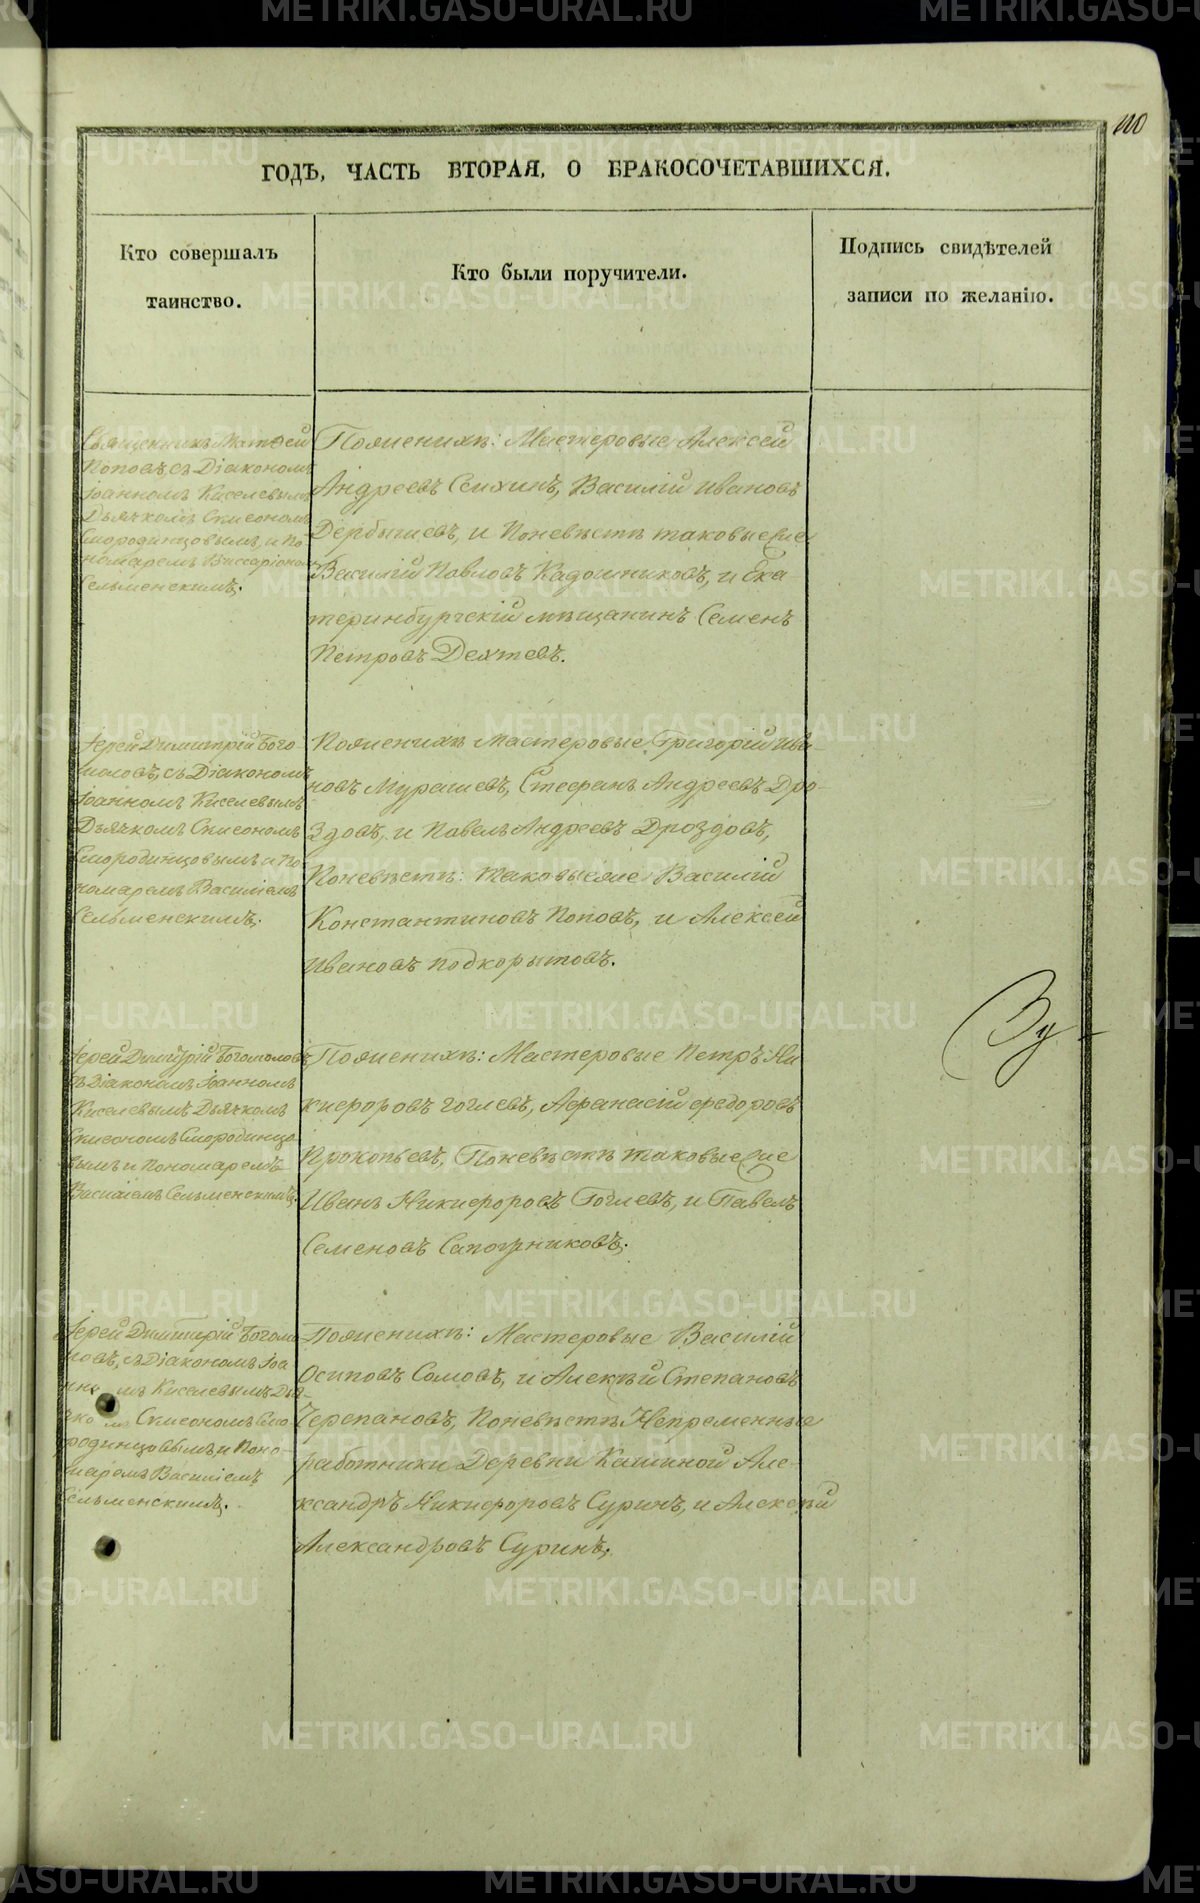 110
ГОДЪ, ЧАСТЬ ВТОРАЯ, О БРАКОСОЧЕТАВШИХСЯ.
Кто совершалъ
таинство.
Кто были поручители.
Подпись свидѣтелей
записи по желанію.
Священникъ Матѳей
Поповъ, съ Діакономъ
Іоанномъ Киселевымъ
Дьячкомъ Симеономъ
Смородинцовымъ, и По-
номаремъ Виссаріономъ
Сельменскимъ.
Поженихѣ: Мастеровые Алексей
Андреевъ Сихинъ, Василій Ивановъ
Дербышевъ, и Поневѣстѣ таковыеже
Василій Павловъ Кадошниковъ, и Ека
теринбургскій мѣщанинъ Семенъ
Петровъ Дехтевъ.
Іерей Димитрій Бого-
моловъ, съ Діакономъ
Іоанномъ Киселевымъ
Дьячкомъ Симеономъ
Смородинцовымъ и По-
номаремъ Василіемъ
Сельменскимъ.
Поженихѣ Мастеровые Григорій Ива-
новъ Мурашевъ, Стефанъ Андреевъ Дро-
здовъ, и Павелъ Андреевъ Дроздовъ,
Поневѣстѣ: таковыеже Василій
Константиновъ Поповъ, и Алексей
Ивановъ Подкорытовъ.
Іерей Димитрій Богомоловъ
съ Діакономъ Іоанномъ
Киселевымъ Дьячкомъ
Симеономъ Смородинцо-
вымъ и Пономаремъ
Василіемъ Сельменскимъ.
Поженихѣ: Мастеровые Петръ Ни
кифоровъ Гоглевъ, Афанасій Федоровъ
Прокопьевъ, Поневѣстѣ таковыеже
Иванъ Никифоровъ Гоглевъ, и Павелъ
Семеновъ Сапожниковъ.
Іерей Димитрій Богомо
ловъ, съ Діакономъ Іоа
нномъ Киселевымъ Дья-
чкомъ Симеономъ Смо-
родинцовымъ, и Поно-
маремъ Василіемъ
Сельменскимъ.
Поженихѣ: Мастеровые Василій
Осиповъ Сомовъ, и Алексѣй Степановъ
Черепановъ, Поневѣстѣ Непременные
работники Деревни Кашиной Але-
ксандръ Никифоровъ Суринъ, и Алексѣй
Александровъ Суринъ.
METRIKI.GASO-URAL.RU